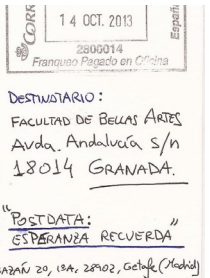 CORR
14 OCT. 2013
Españ
2800014
Franqueo Pagado en Oficina
DESTINATARIO:
FACULTAD DE BELLAS ARTES
Avda. Andalucía S/n
18014 GRANADA.
"POSTDATA:
ESPERANZA RECUERDA"
BAZÁN 20, 13A, 28902, Getafe (Madrid)